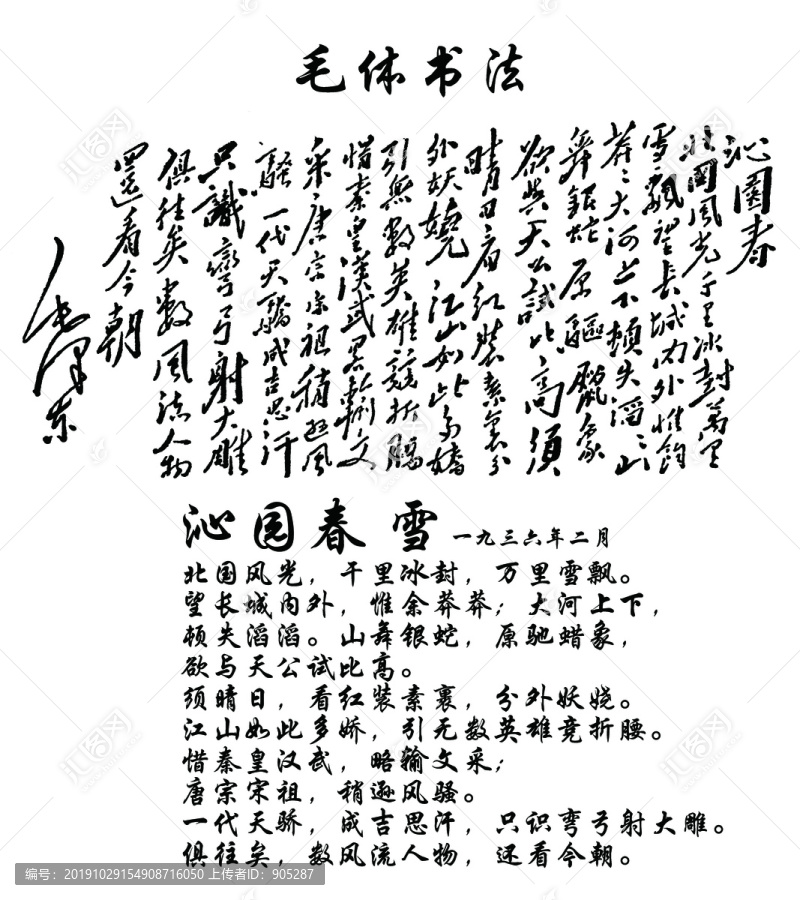 毛体书法
沁園春
北國風光千里冰封萬里
雪飄望長城内外惟餘
莽〻大河上下頓失滔〻山
舞銀蛇原驅臘象
欲與天公試比高須
晴日看红裝素裹分
外妖嬈江山如此多嬌
引無數英雄競折腰
惜秦皇漢武略輸文
采唐宗宋祖稍遜風
騷一代天驕成吉思汗
只識彎弓射大雕
俱往矣數風流人物
還看今朝
毛澤東
沁园春 雪 一九三六年二月
北国风光，千里冰封，万里雪飘。
望长城内外，惟余莽莽；大河上下，
顿失滔滔。山舞银蛇，原驰蜡象，
欲与天公试比高。
须晴日，看红装素裹，分外妖娆。
江山如此多娇，引无数英雄竞折腰。
惜秦皇汉武，略输文采；
唐宗宋祖，稍逊风骚。
一代天骄，成吉思汗，只识弯弓射大雕。
俱往矣，数风流人物，还看今朝。
编号：20191029154908716050 上传者ID：905287